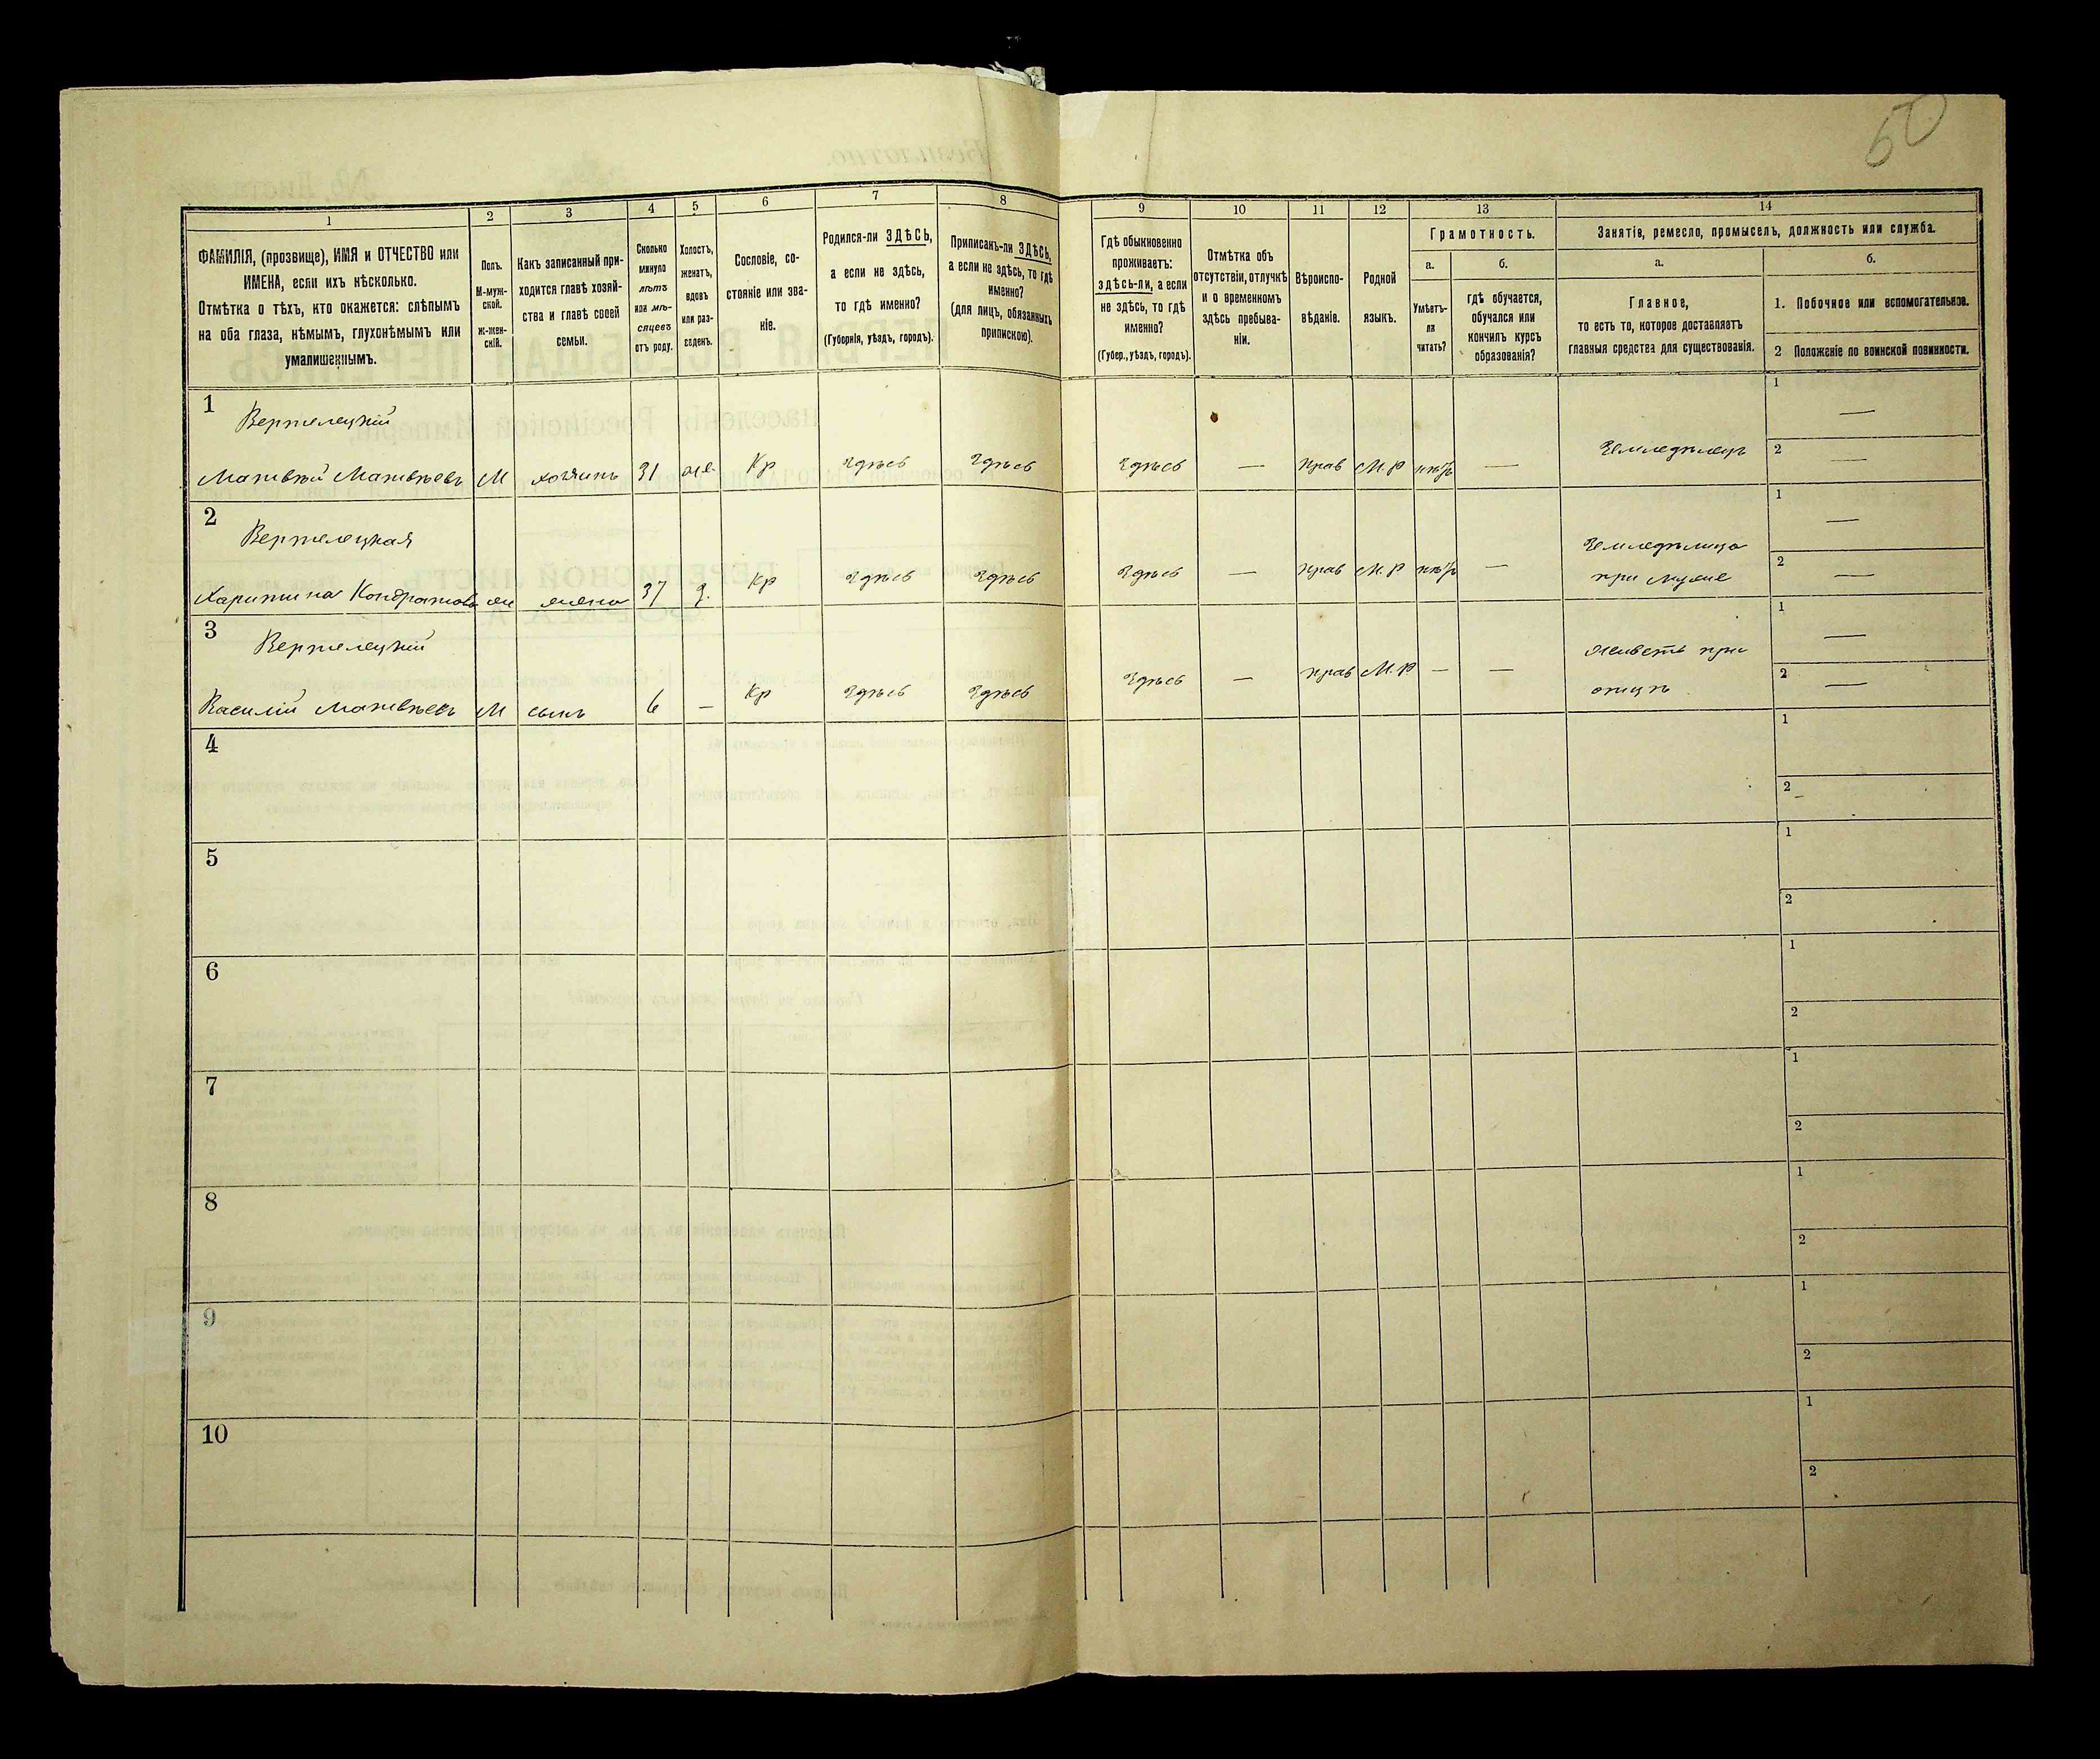 60
1 2 3 4 5 6 7 8 9 10 11 12 13 14
ФАМИЛІЯ, (прозвище), ИМЯ и ОТЧЕСТВО или
ИМЕНА, если ихъ нѣсколько.
Отмѣтка о тѣхъ, кто окажется: слѣпымъ
на оба глаза, нѣмымъ, глухонѣмымъ или
умалишеннымъ.
Полъ.
М-муж-
ской.
ж-жен-
скій.
Какъ записанный при-
ходится главѣ хозяй-
ства и главѣ своей
семьи.
Сколько
минуло
лѣтъ
или мѣ-
сяцевъ
отъ роду.
Холостъ,
женатъ,
вдовъ
или раз-
веденъ.
Сословіе, со-
стояніе или зва-
ніе.
Родился-ли ЗДѢСЬ,
а если не здѣсь,
то гдѣ именно?
(Губернія, уѣздъ, городъ).
Приписанъ-ли ЗДѢСЬ,
а если не здѣсь, то гдѣ
именно?
(для лицъ, обязанныхъ
припискою).
Гдѣ обыкновенно
проживаетъ:
здѣсь-ли, а если
не здѣсь, то гдѣ
именно?
(Губер., уѣздъ, городъ).
Отмѣтка объ
отсутствіи, отлучкѣ
и о временномъ
здѣсь пребыва-
ніи.
Вѣроиспо-
вѣданіе.
Родной
языкъ.
Грамотность.
а.
Умѣетъ-
ли
читать?
б.
гдѣ обучается,
обучался или
кончилъ курсъ
образованія?
Занятіе, ремесло, промыселъ, должность или служба.
а.
Главное,
то есть то, которое доставляетъ
главныя средства для существованія.
б.
1. Побочное или вспомогательное.
2 Положеніе по воинской повинности.
1
Вертелецкій
Матвѣй Матвѣевъ М хозяинъ 31 же Кр Здѣсь Здѣсь Здѣсь — прав М.Р нѣтъ — Земледѣлецъ
1 —
2 —
2
Вертелецкая
Харитина Кондратова ж жена 37 з. Кр Здѣсь Здѣсь Здѣсь — прав М.Р нѣтъ — Земледѣлица
при мужѣ
1 —
2 —
3
Вертелецкій
Василій Матвѣевъ М сынъ 6 — Кр Здѣсь Здѣсь Здѣсь — прав М.Р — — Живетъ при
отцѣ
1 —
2 —
4
1
2
5
1
2
6
1
2
7
1
2
8
1
2
9
1
2
10
1
2